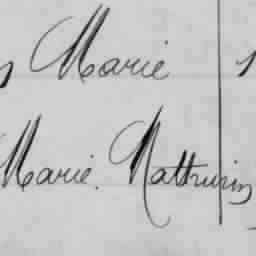 Marie
Marie. Mathurin